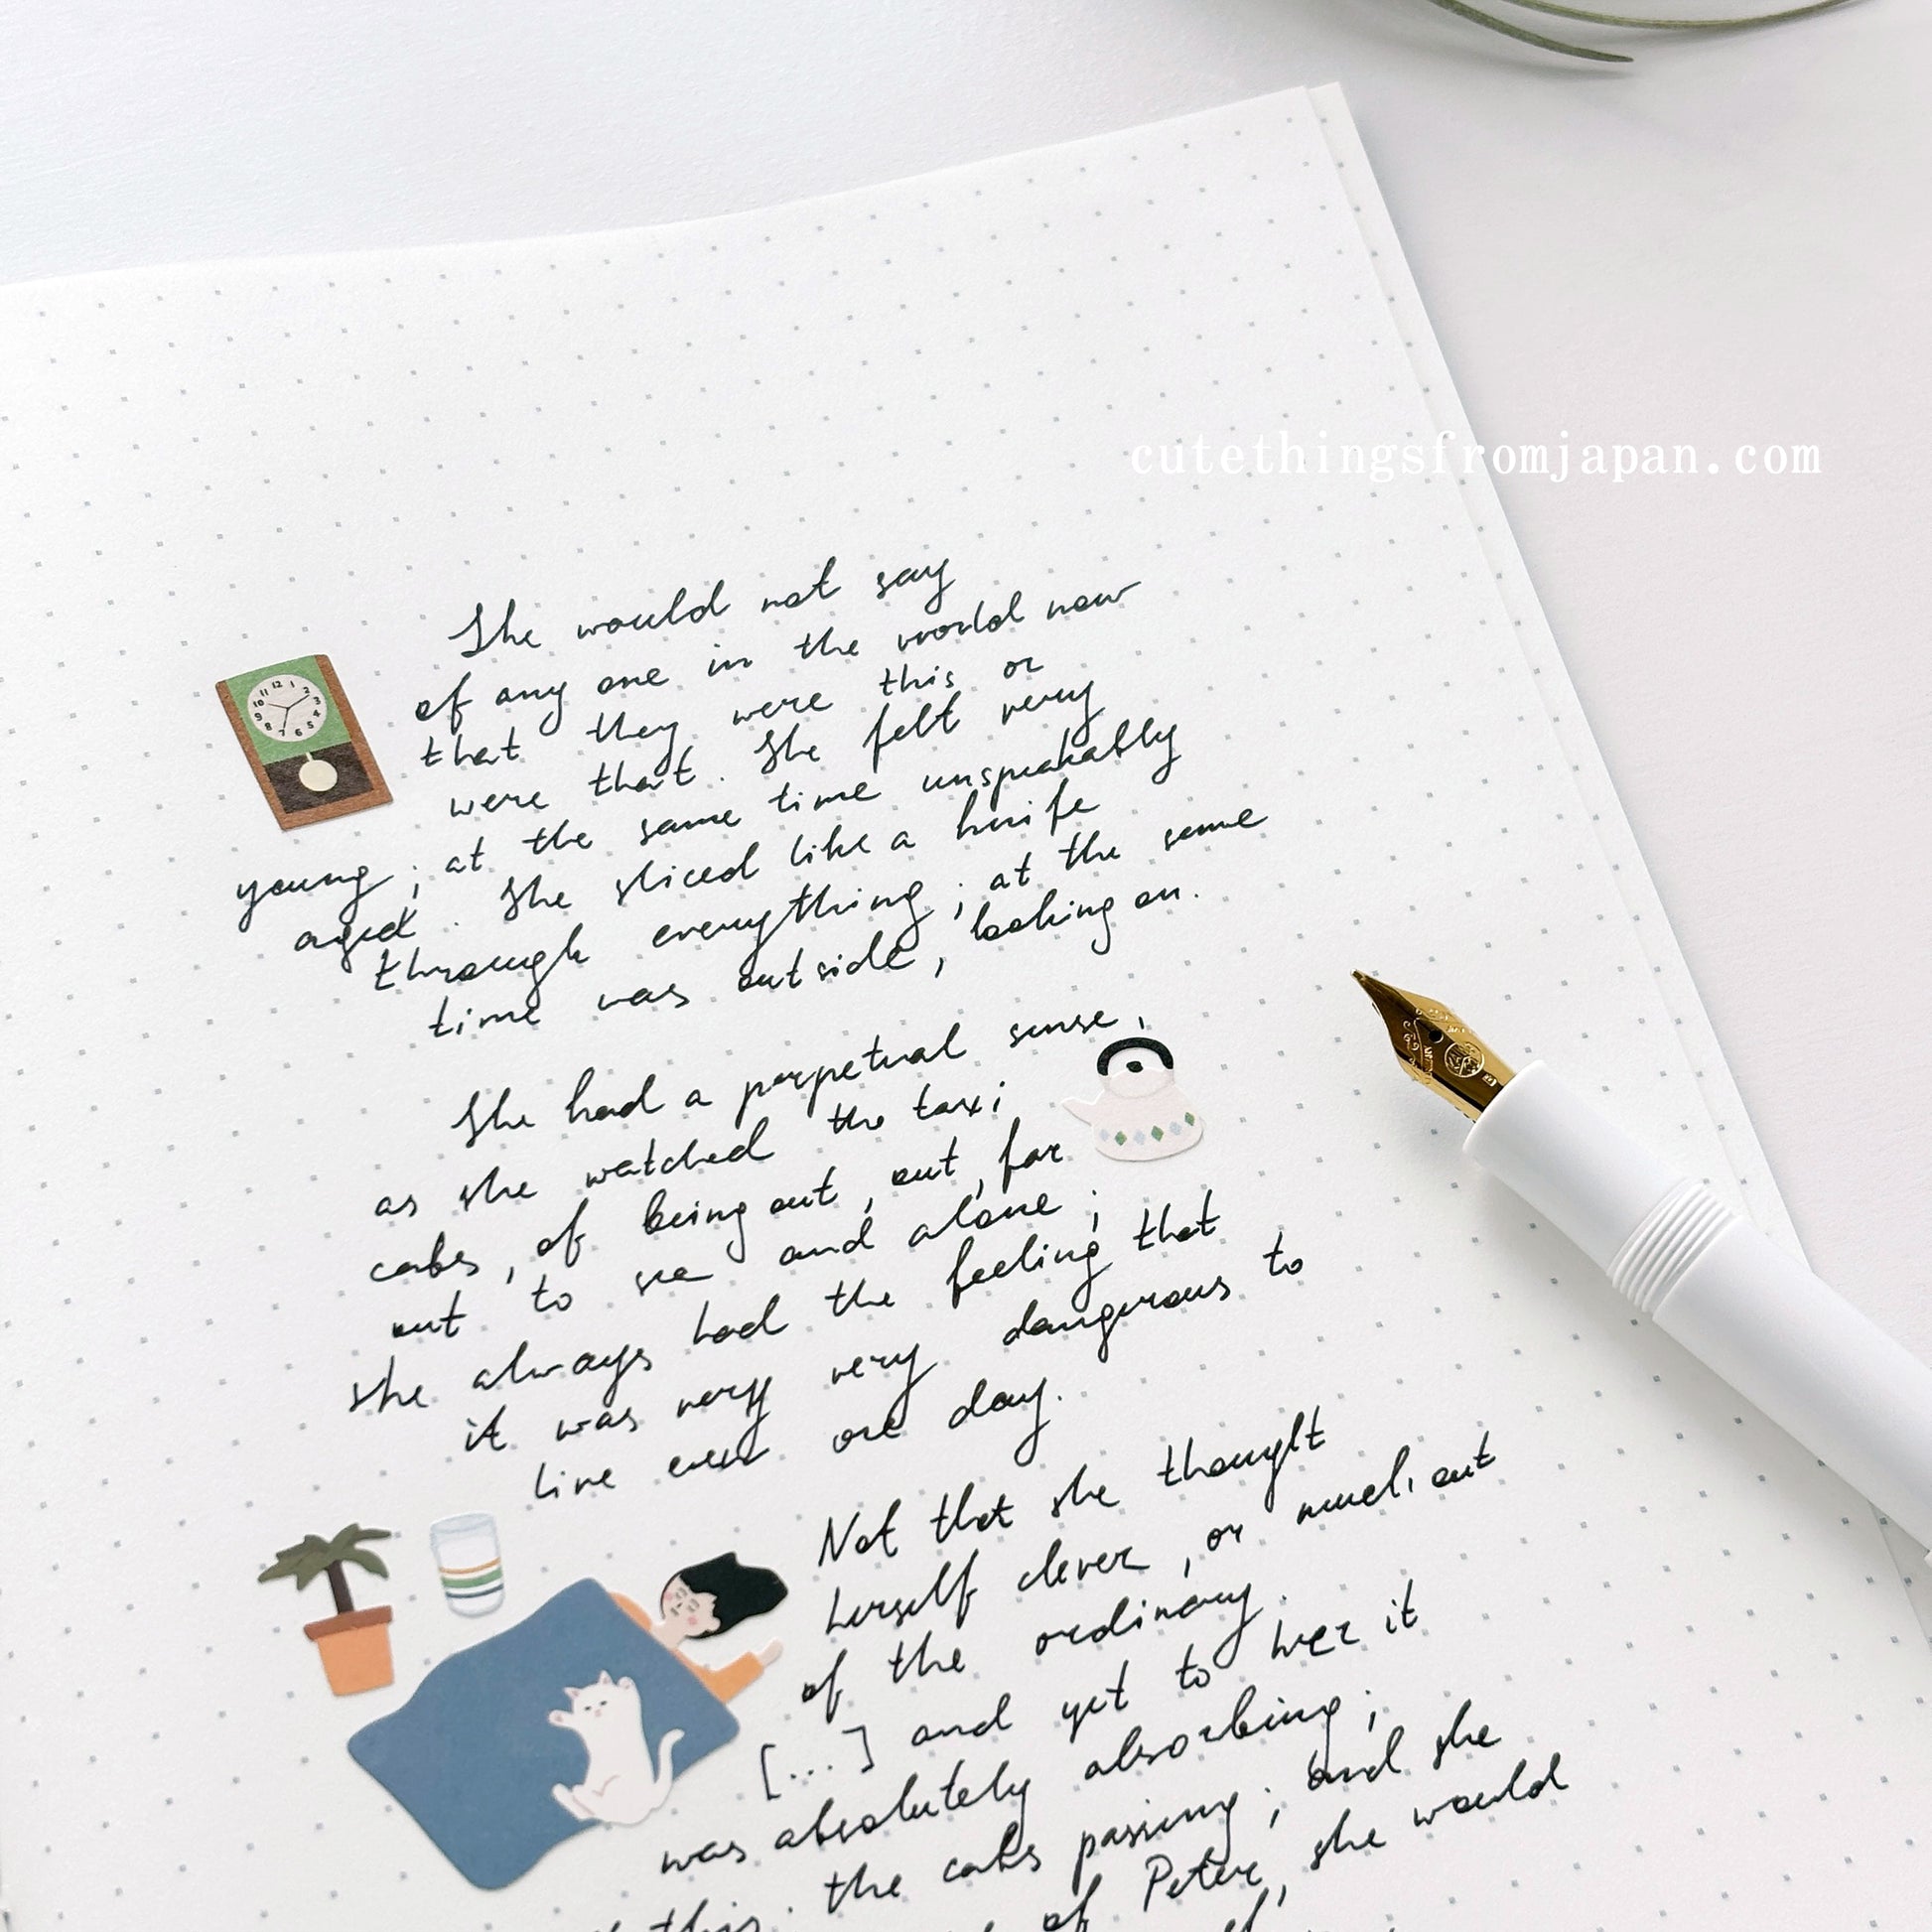 cutethingsfromjapan.com
She would not say
of any one in the world now
that they were this or
were that. She felt very
young; at the same time unspeakably
aged. She sliced like a knife
through everything; at the same
time was outside, looking on.
She had a perpetual sense,
as she watched the taxi
cabs, of being out, out, far
out to sea and alone;
she always had the feeling that
it was very very dangerous to
live even one day.
Not that she thought
herself clever, or much out
of the ordinary.
[...] and yet to her it
was absolutely absorbing;
this. the cabs passing; and she
of Peter, she would